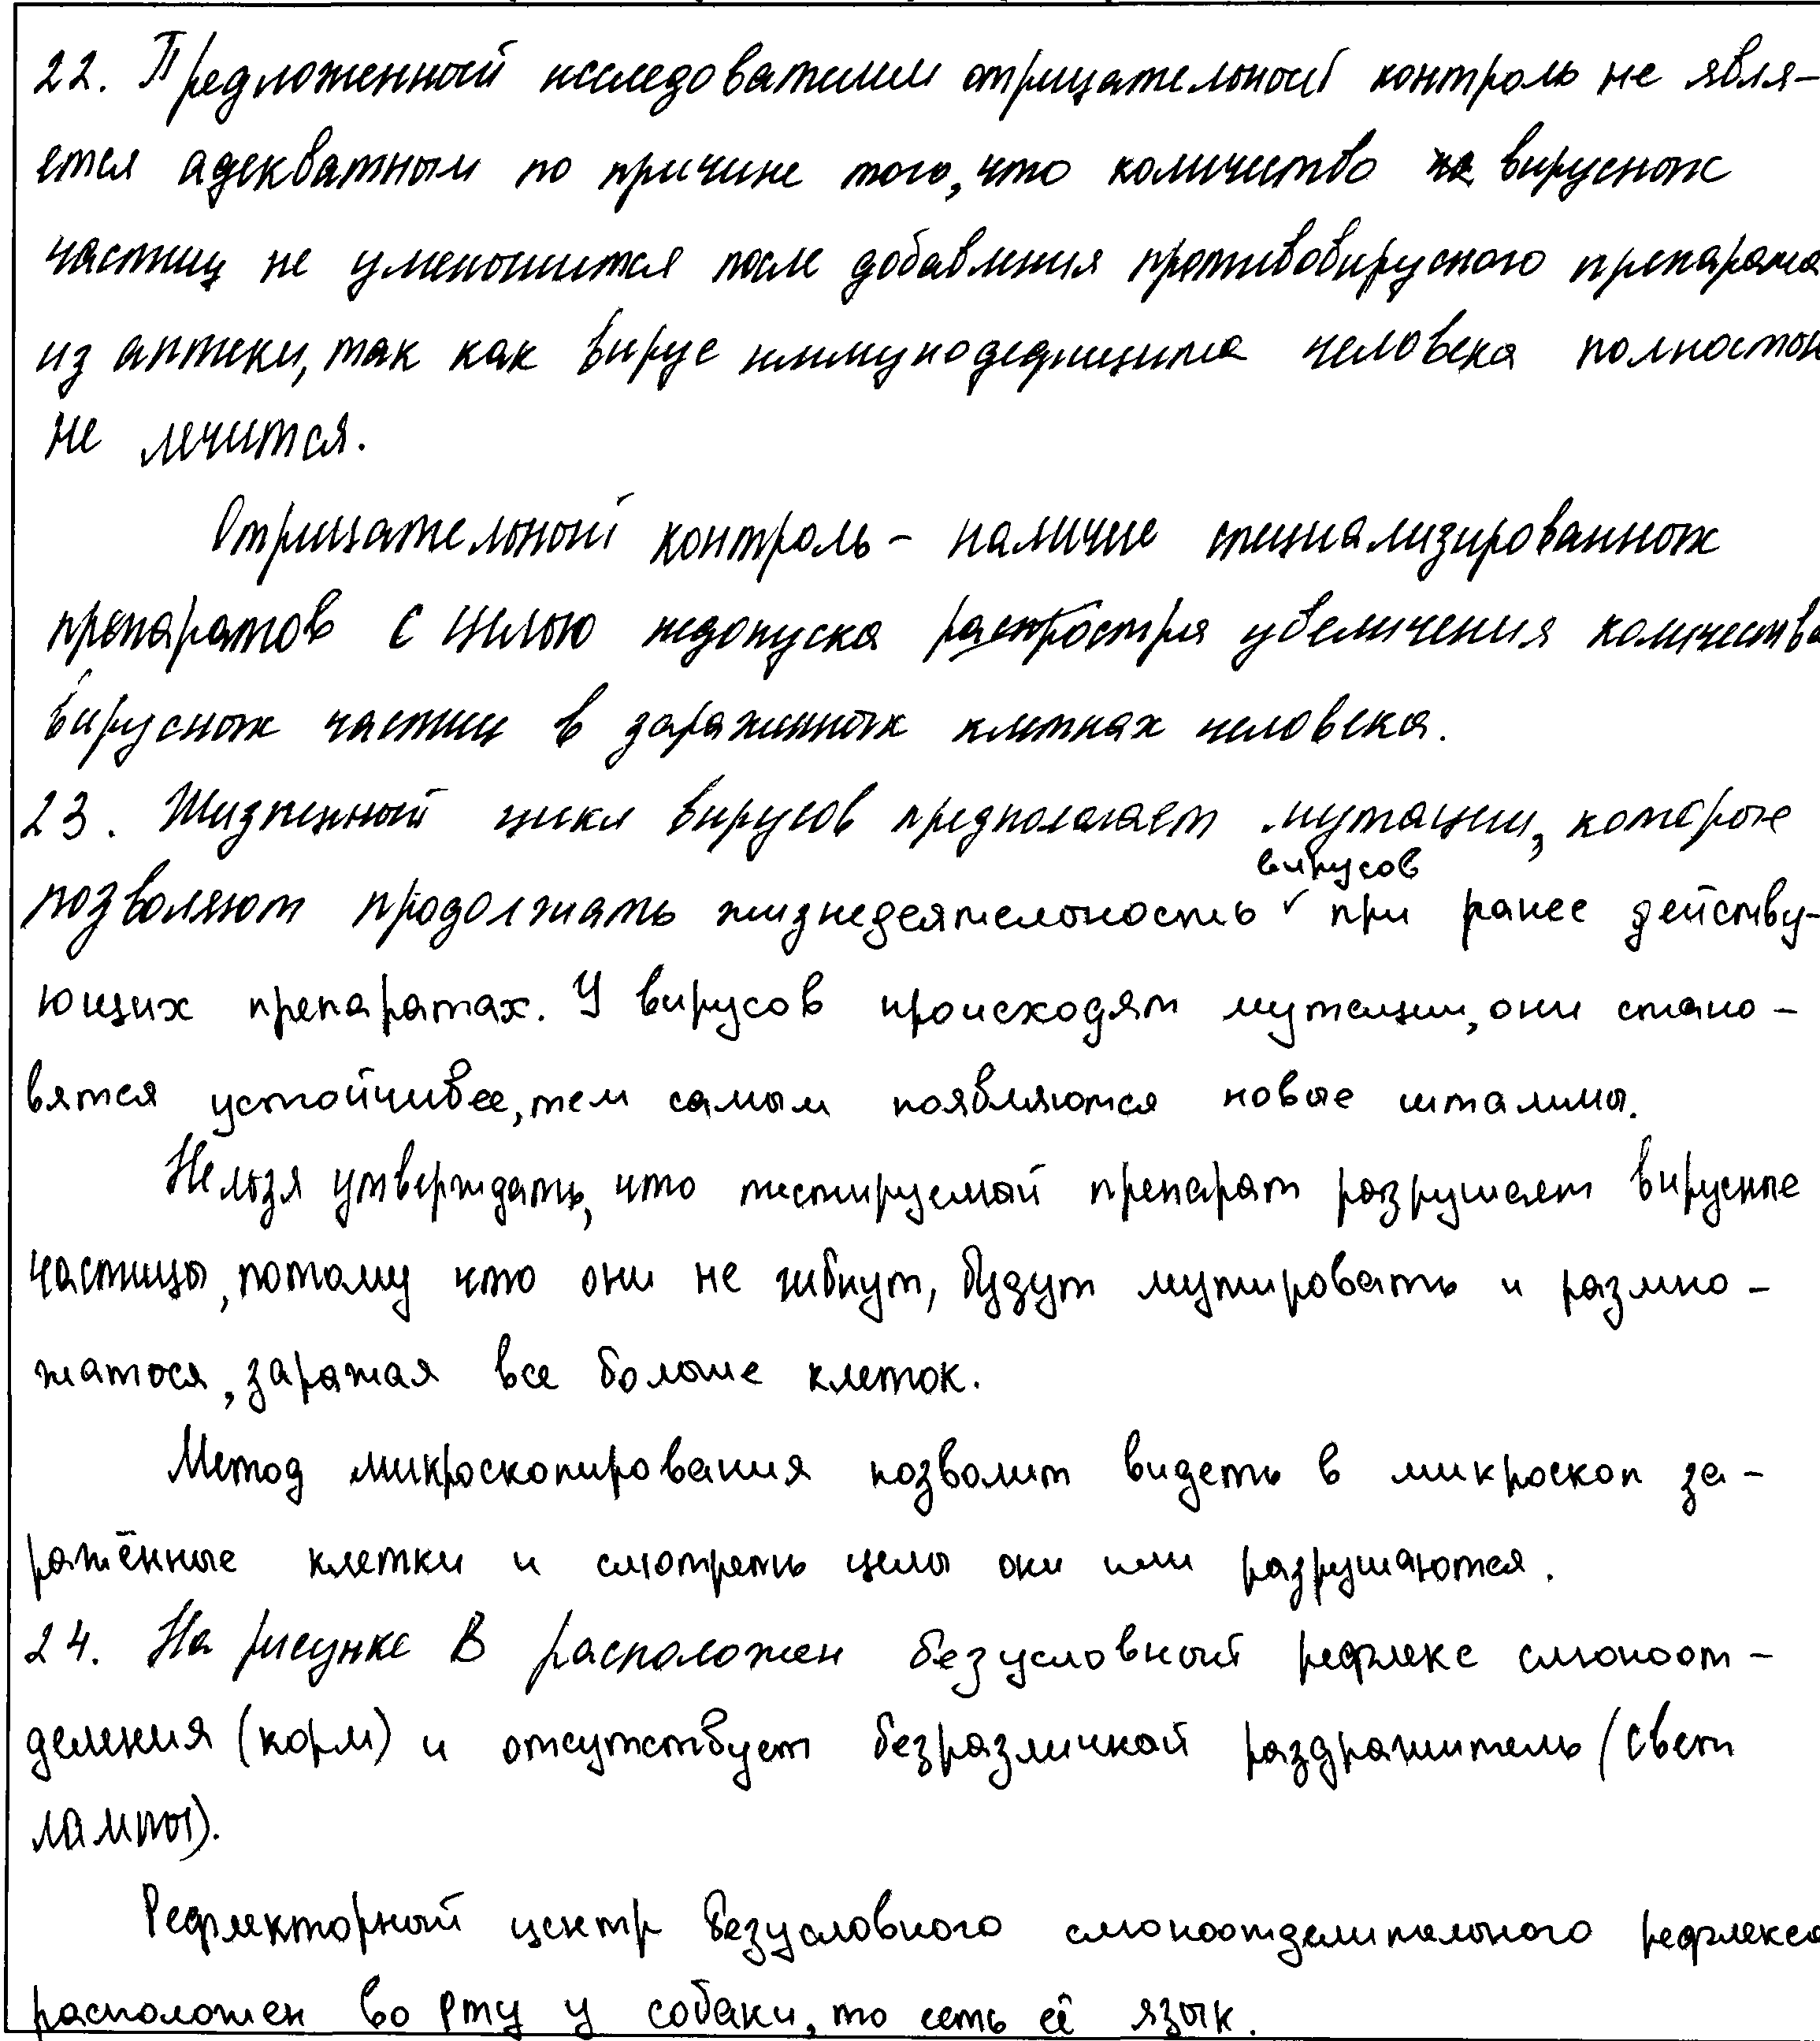 22. Предложенный исследователем отрицательный контроль не явля-
ется адекватным по причине того, что количество вирусных
частиц не уменьшится после добавления противовирусного препарата
из аптеки, так как вирус иммунодефицита человека полностью
не лечится.
Отрицательный контроль - наличие специализированных
препаратов с целью недопуска распростра увеличения количества
вирусных частиц в зараженных клетках человека.
23. Жизненный цикл вирусов предполагает мутации, которые
вирусов
позволяют продолжать жизнедеятельность ✓ при ранее действу-
ющих препаратах. У вирусов происходят мутации, они стано-
вятся устойчивее, тем самым появляются новые штаммы.
Нельзя утверждать, что тестируемый препарат разрушает вирусные
частицы, потому что они не гибнут, будут мутировать и размно-
жаться, заражая все больше клеток.
Метод микроскопирования позволит видеть в микроскоп за-
ражённые клетки и смотреть целы они или разрушаются.
24. На рисунке В расположен безусловный рефлекс слюноот-
деления (корм) и отсутствует безразличный раздражитель (свет
лампы).
Рефлекторный центр безусловного слюноотделительного рефлекса
расположен во рту у собаки, то есть её язык.